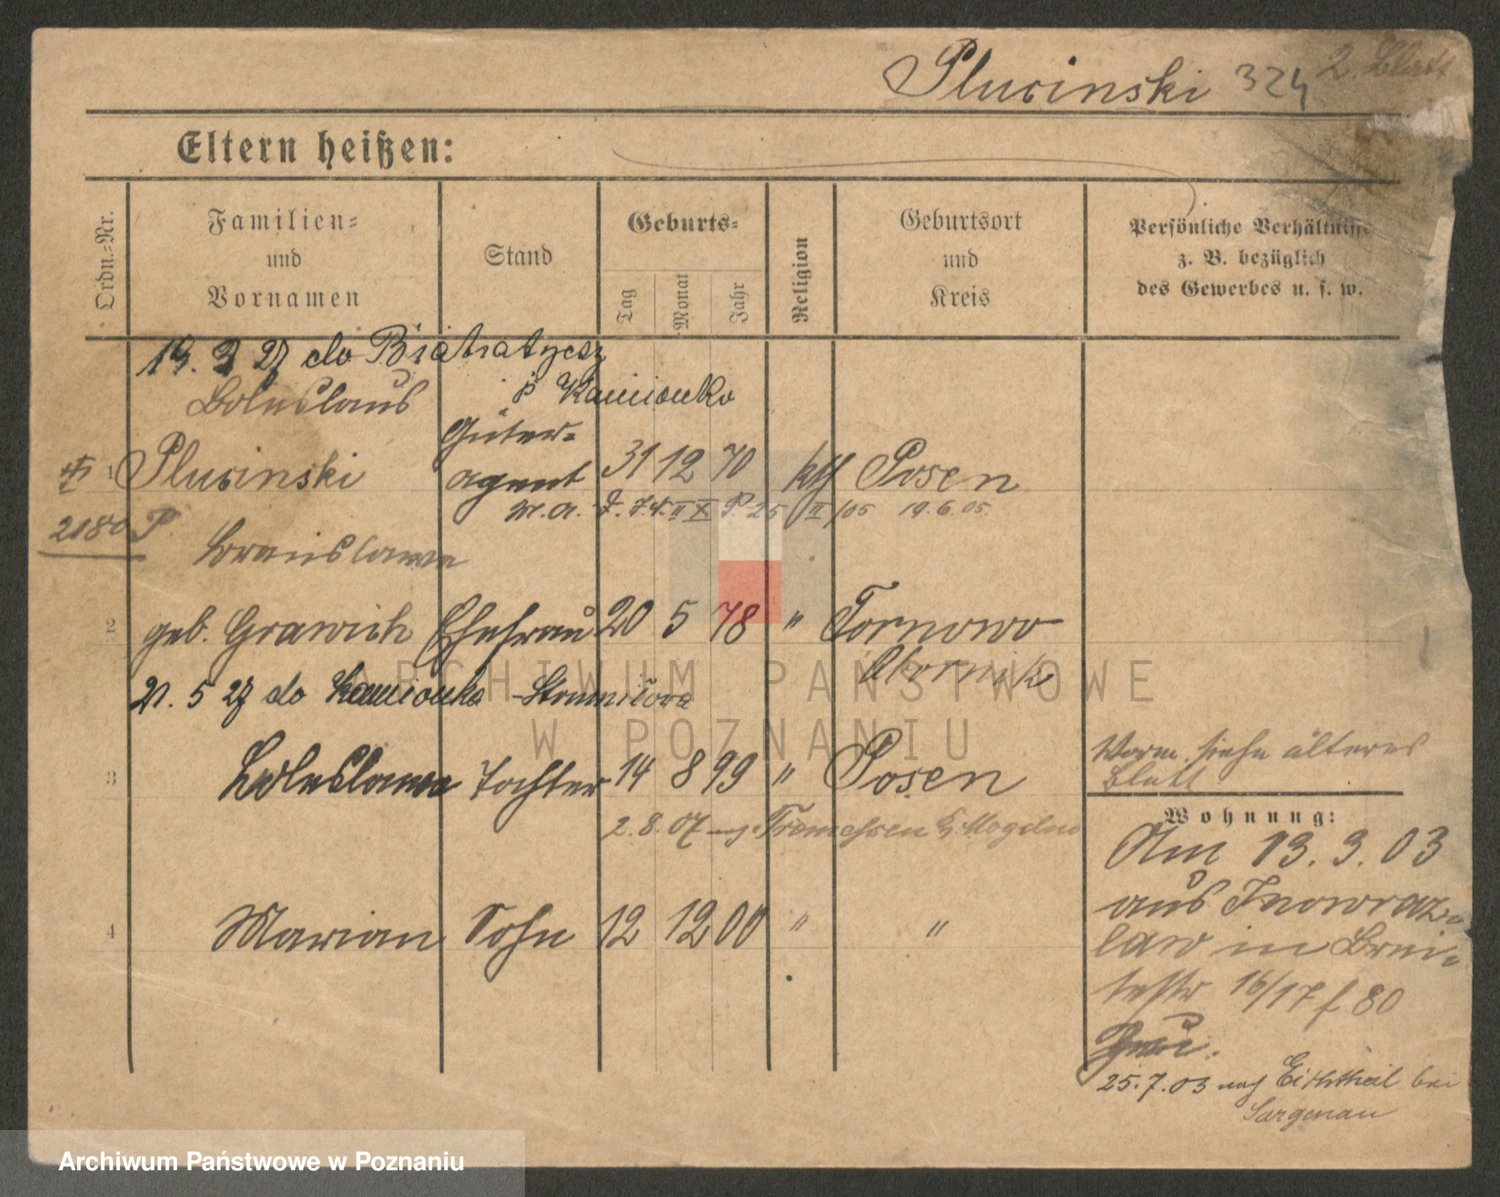 Plucinski 324 2. Blatt
Eltern heißen:
Ordn.-Nr.
Familien-
und
Vornamen
Stand
Geburts-
Tag
Monat
Jahr
Religion
Geburtsort
und
Kreis
Persönliche Verhältnisse
z. B. bezüglich
des Gewerbes u. s. w.
19. 3 27 do
Boleslaus
p Kamionka
Güter-
1 Plucinski agent 31 12 70 kth Posen
25 II/05 19.6.05
2180 P.
Bronislawa
2 geb. Grawich Ehefrau 20 5 78 " Tornowo
Obornik
21. 5 27 do Kamionka - Strumiłowa
3 Boleslawa Tochter 14 8 99 " Posen
Vorm. siehe älteres
Blatt
2. 8. 07 Tremessen Kr. Mogilno
Wohnung:
Am 13. 3. 03
aus Inowraz-
law in Brei-
testr 16/17 f. 80
4 Marian Sohn 12 12 00 " "
25.7.03 nach Eichthal bei
Sargenau
ARCHIWUM PAŃSTWOWE
W POZNANIU
Archiwum Państwowe w Poznaniu